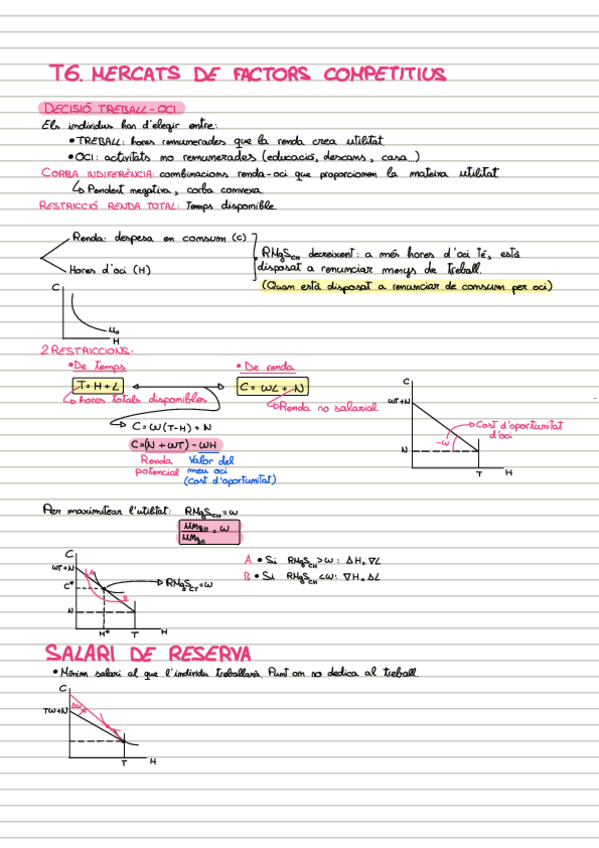 T6. MERCATS DE FACTORS COMPETITIUS
DECISIÓ TREBALL - OCI
Els individus han d'elegir entre:
• TREBALL: hores remunerades que la renda crea utilitat
• OCI: activitats no remunerades (educació, descans, casa...)
CORBA INDIFERÈNCIA: combinacions renda-oci que proporcionen la mateixa utilitat
↳ Pendent negativa, corba convexa
RESTRICCIÓ RENDA TOTAL: Temps disponible
Renda: despesa en consum (C)
Hores d'oci (H)
RMgS CH decreixent: a més hores d'oci té, està
disposat a renunciar menys de treball.
(Quan està disposat a renunciar de consum per oci)
C
M₀
H
2 RESTRICCIONS:
• De Temps
• De renda
T = H + L
C = WL + N
↳ hores totals disponibles
↳ Renda no salarial
C = W(T-H) + N
C = (N + WT) - WH
Renda potencial
Valor del meu oci
(Cost d'oportunitat)
C
WT+N
-W
Cost d'oportunitat d'oci
N
T
H
Per maximitzar l'utilitat: RMgS CH = W
UMgH / UMgC = W
A • Si RMgS CH > W: ΔH, ∇L
B • Si RMgS CH < W: ∇H, ΔL
C
WT+N
A
C*
RMgS CT = W
B
N
H*
T
H
SALARI DE RESERVA
• Mínim salari al que l'individu treballarà. Punt on no dedica al treball.
C
TW+N
ΔW
T
H